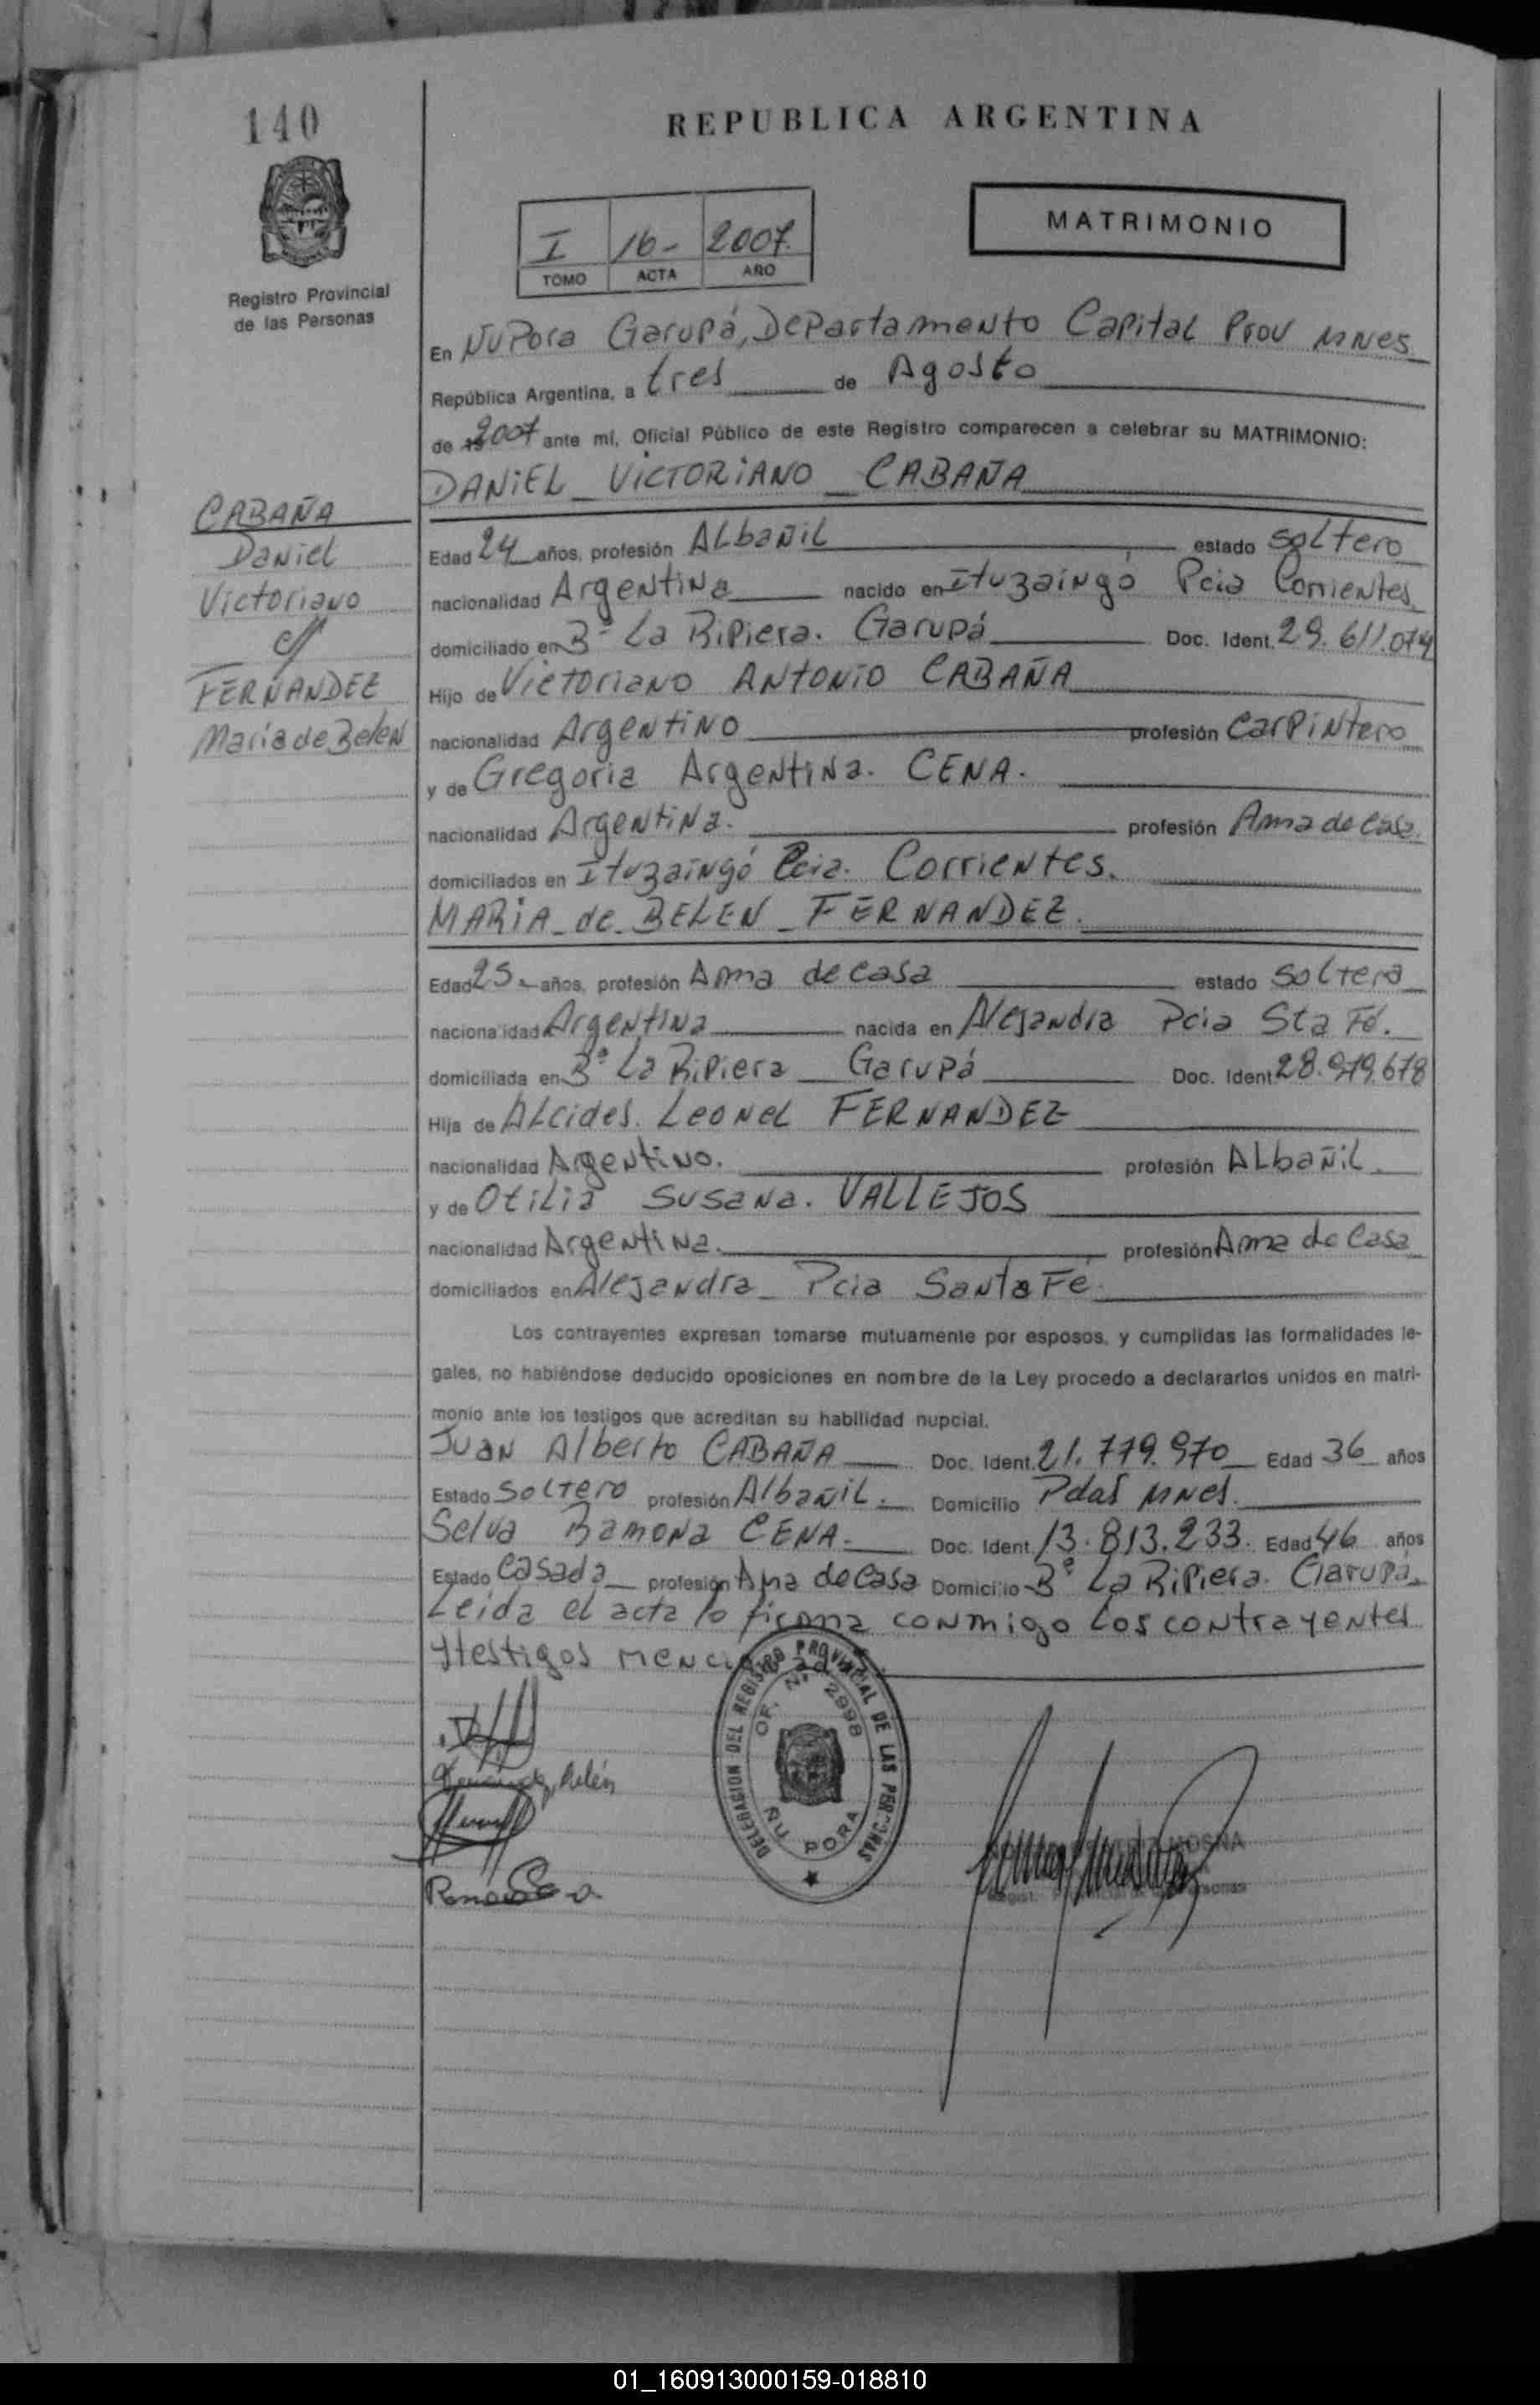 140
REPUBLICA ARGENTINA
Registro Provincial
de las Personas
I 16- 2007.
TOMO ACTA AÑO
MATRIMONIO
En ÑUPora Garupá, Departamento Capital Prov MNes
República Argentina, a tres de Agosto
de 2007 ante mí, Oficial Público de este Registro comparecen a celebrar su MATRIMONIO:
DANIEL VICTORIANO CABAÑA
CABAÑA
Daniel
Victoriano
c/
FERNANDEZ
Maria de Belen
Edad 24 años, profesión ALbañiL estado soltero
nacionalidad Argentina nacido en Ituzaingó Pcia Corrientes
domiciliado en Bº La Ripiera. Garupá Doc. Ident. 29.611.074
Hijo de Victoriano Antonio CABAÑA
nacionalidad Argentino profesión carpintero
y de Gregoria Argentina. CENA.
nacionalidad Argentina. profesión Ama de casa.
domiciliados en Ituzaingó Pcia. Corrientes.
MARIA de BELEN FERNANDEZ.
Edad 25 años, profesión Ama de casa estado soltera
nacionalidad Argentina nacida en Alejandra Pcia Sta Fé.
domiciliada en Bº La Ripiera Garupá Doc. Ident 28.979.678
Hija de ALcides. Leonel FERNANDEZ
nacionalidad Argentino. profesión ALbañiL.
y de Otilia Susana. VALLEJOS
nacionalidad Argentina. profesión Ama de Casa
domiciliados en Alejandra Pcia Santa Fé.
Los contrayentes expresan tomarse mutuamente por esposos, y cumplidas las formalidades le-
gales, no habiéndose deducido oposiciones en nombre de la Ley procedo a declararlos unidos en matri-
monio ante los testigos que acreditan su habilidad nupcial.
Juan Alberto CABAÑA Doc. Ident. 21.779.970 Edad 36 años
Estado Soltero profesión AlbañiL. Domicilio Pdas MNes.
Selva Ramona CENA. Doc. Ident. 13.813.233. Edad 46 años
Estado Casada profesión Ama de Casa Domicilio Bº La Ripiera. Garupá.
Leida el acta lo firma conmigo los contrayentes
y testigos
DELEGACION DEL REGISTRO PROVINCIAL DE LAS PERSONAS
OF. Nº 2998
ÑU PORA
Belén
01_160913000159-018810